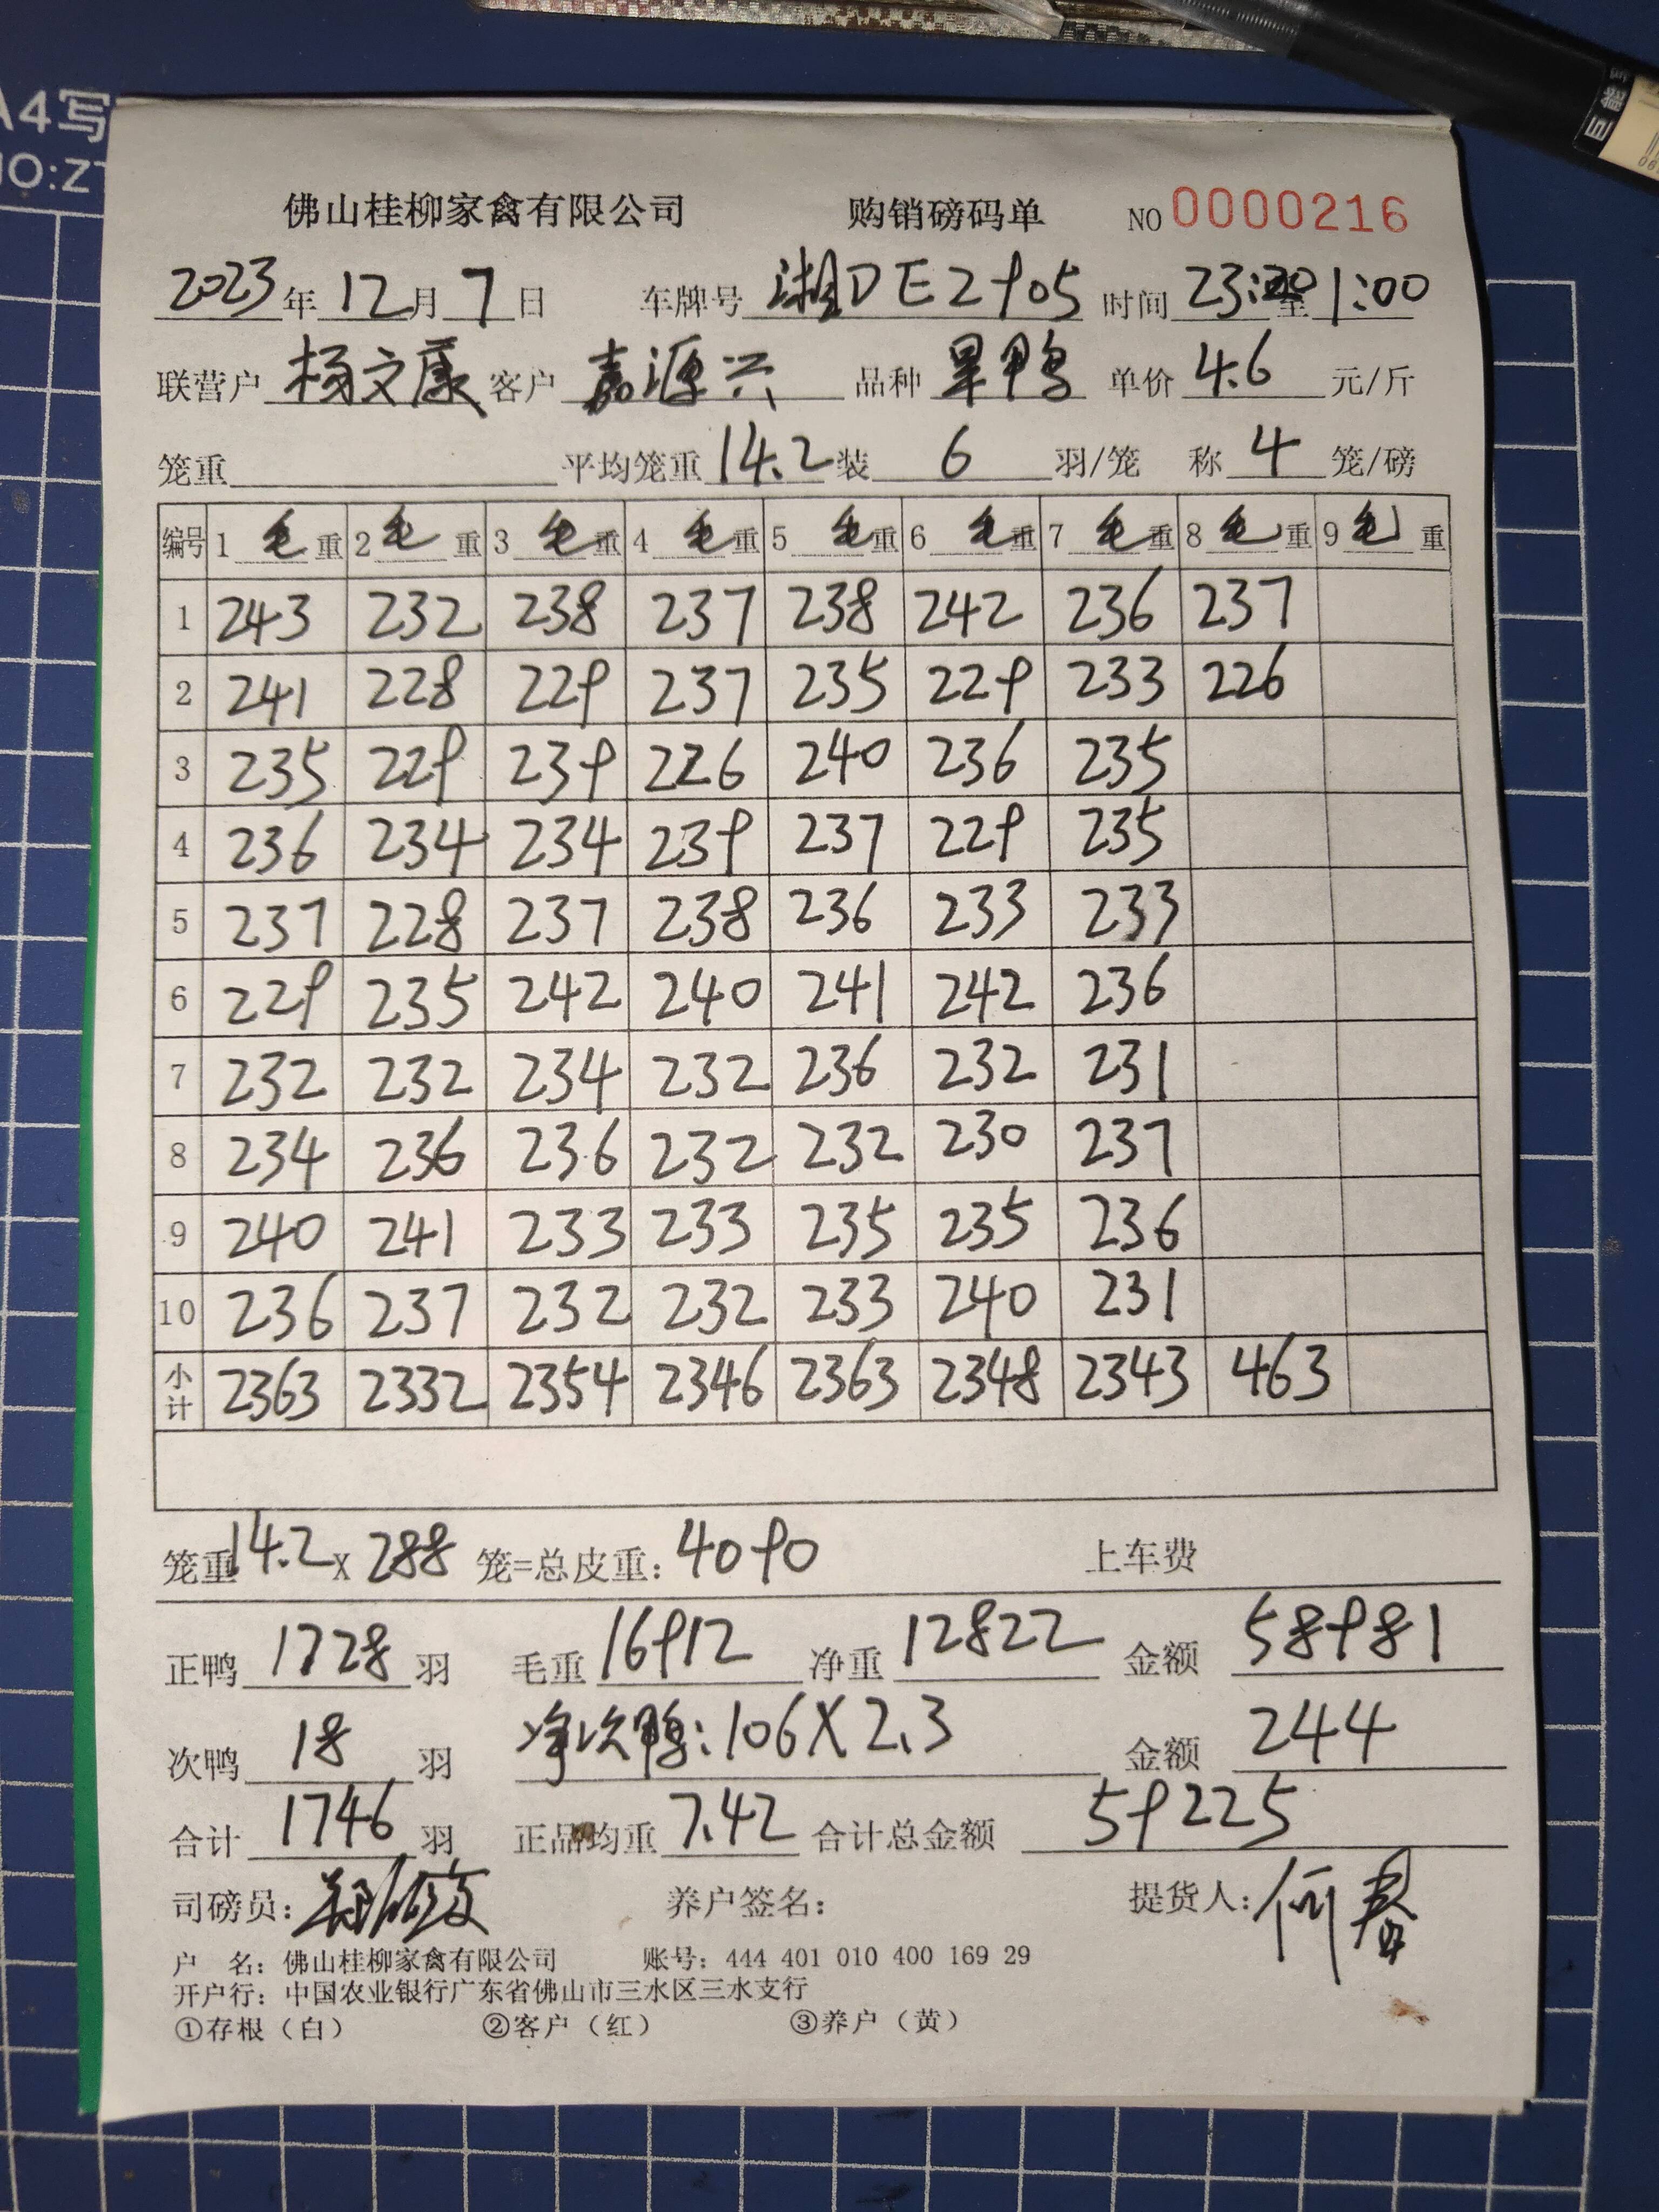 A4写
NO:ZT
巨能写
佛山桂柳家禽有限公司 购销磅码单 NO 0000216
2023年12月7日 车牌号 湘DE2905 时间 23:20至1:00
联营户 杨文康 客户 嘉源兴 品种 旱鸭 单价 4.6 元/斤
笼重 平均笼重 14.2 装 6 羽/笼 称 4 笼/磅
编号 1 毛重 2 毛重 3 毛重 4 毛重 5 毛重 6 毛重 7 毛重 8 毛重 9 毛重
1 243 232 238 237 238 242 236 237
2 241 228 229 237 235 229 233 226
3 235 229 239 226 240 236 235
4 236 234 234 239 237 229 235
5 237 228 237 238 236 233 233
6 229 235 242 240 241 242 236
7 232 232 234 232 236 232 231
8 234 236 236 232 232 230 237
9 240 241 233 233 235 235 236
10 236 237 232 232 233 240 231
小计 2363 2332 2354 2346 2363 2348 2343 463
笼重 14.2 X 288 笼=总皮重: 4090 上车费
正鸭 1728 羽 毛重 16912 净重 12822 金额 58981
次鸭 18 羽 净次鸭: 106X2.3 金额 244
合计 1746 羽 正品均重 7.42 合计总金额 59225
司磅员: 养户签名: 提货人: 何春
户 名: 佛山桂柳家禽有限公司 账号: 444 401 010 400 169 29
开户行: 中国农业银行广东省佛山市三水区三水支行
①存根（白） ②客户（红） ③养户（黄）